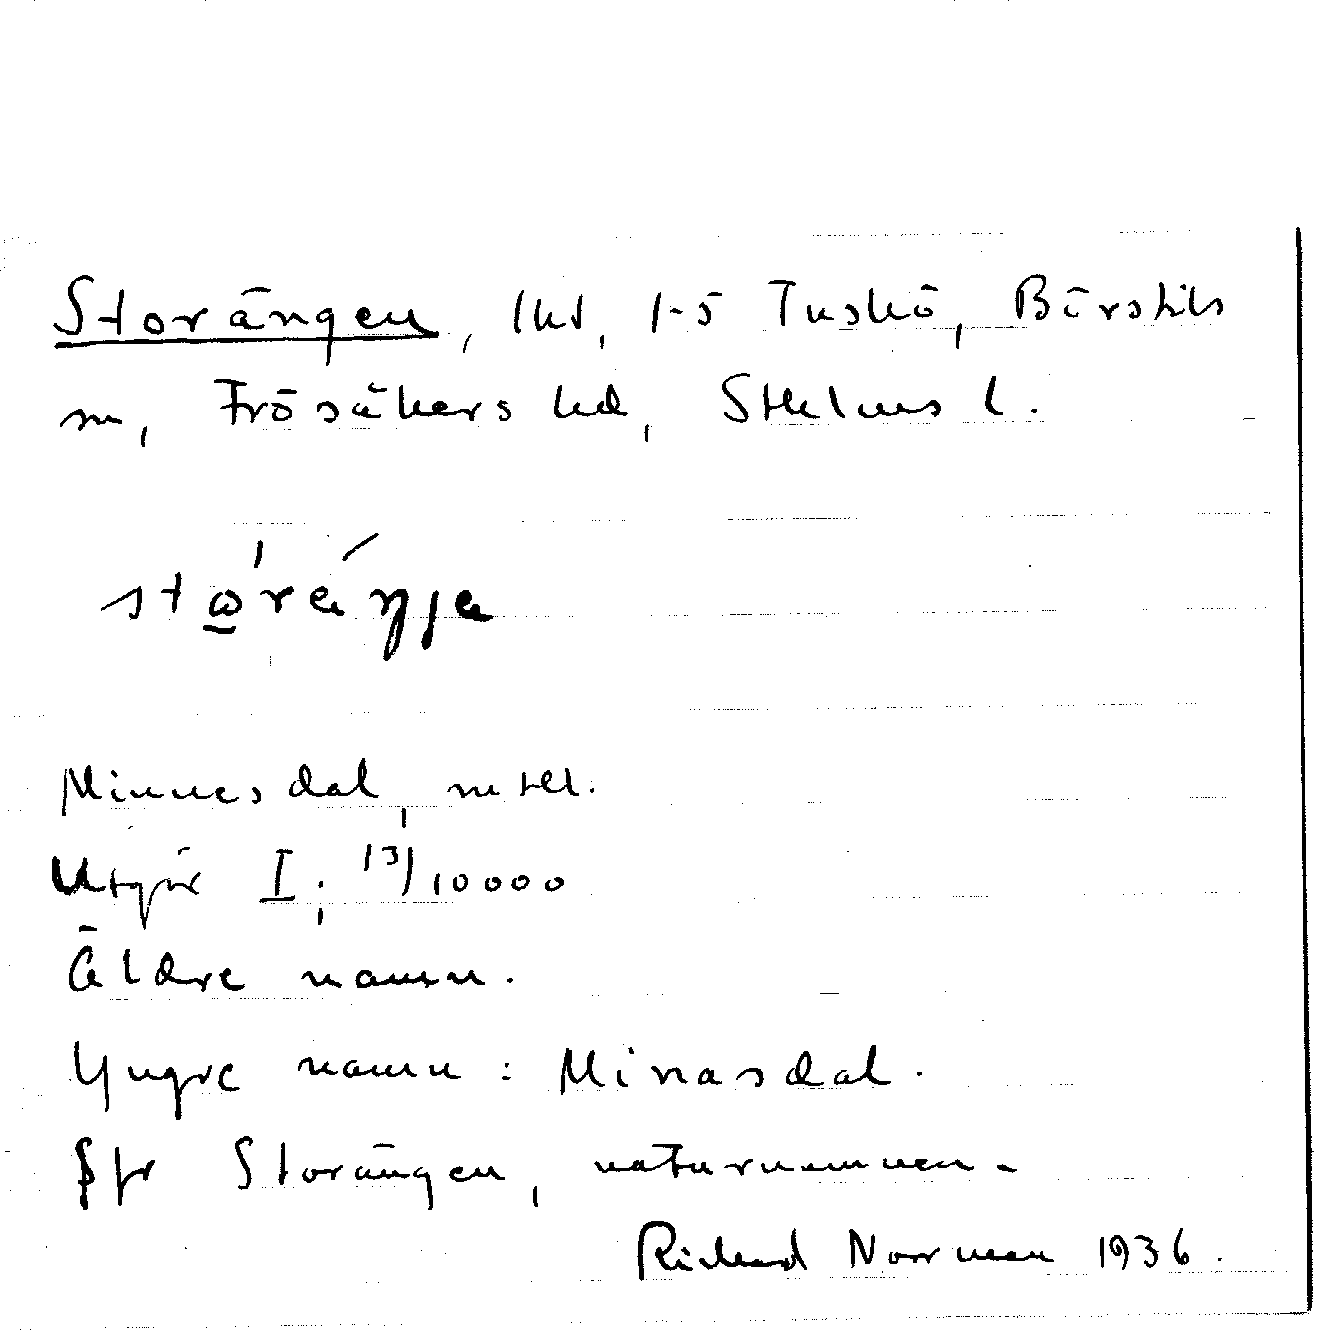 Storängen, lht, 1-5 Tuskö, Börstils
sn, Frösåkers hd, Sthlms l.
støräŋja
Minnesdal, mtll.
Utgör I; 13/10000
Äldre namn.
Yngre namn: Minasdal.
Jfr Storängen, naturnamnen.
Richard Norrman 1936.